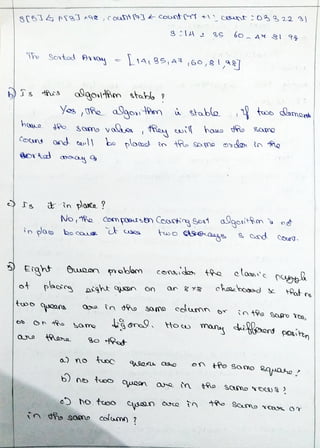 S[5] ← A[3] = 98, count[3] ← count[3] + 1; count: 0 3 3 2 2 31
S: 14 35 60 47 81 98
The Sorted Array = [14, 35, 47, 60, 81, 98]
b) Is this algorithm stable?
Yes, the algorithm is stable, if two element
have the same values, they will have the same
count and will be placed in the same order in the
sorted array
c) Is it in place?
No, the comparison Counting sort algorithm is not
in place because it uses two arrays S and count.
5) Eight Queen problem consider the classic puzzle
of placing eight queen on an 8x8 chessboard so that no
two queens are in the same column or in the same row
or on the same diagonal. How many different position
are there so that
a) no two queens are on the same square?
b) no two queen are in the same rows?
c) no two queen are in the same row or
in the same column?